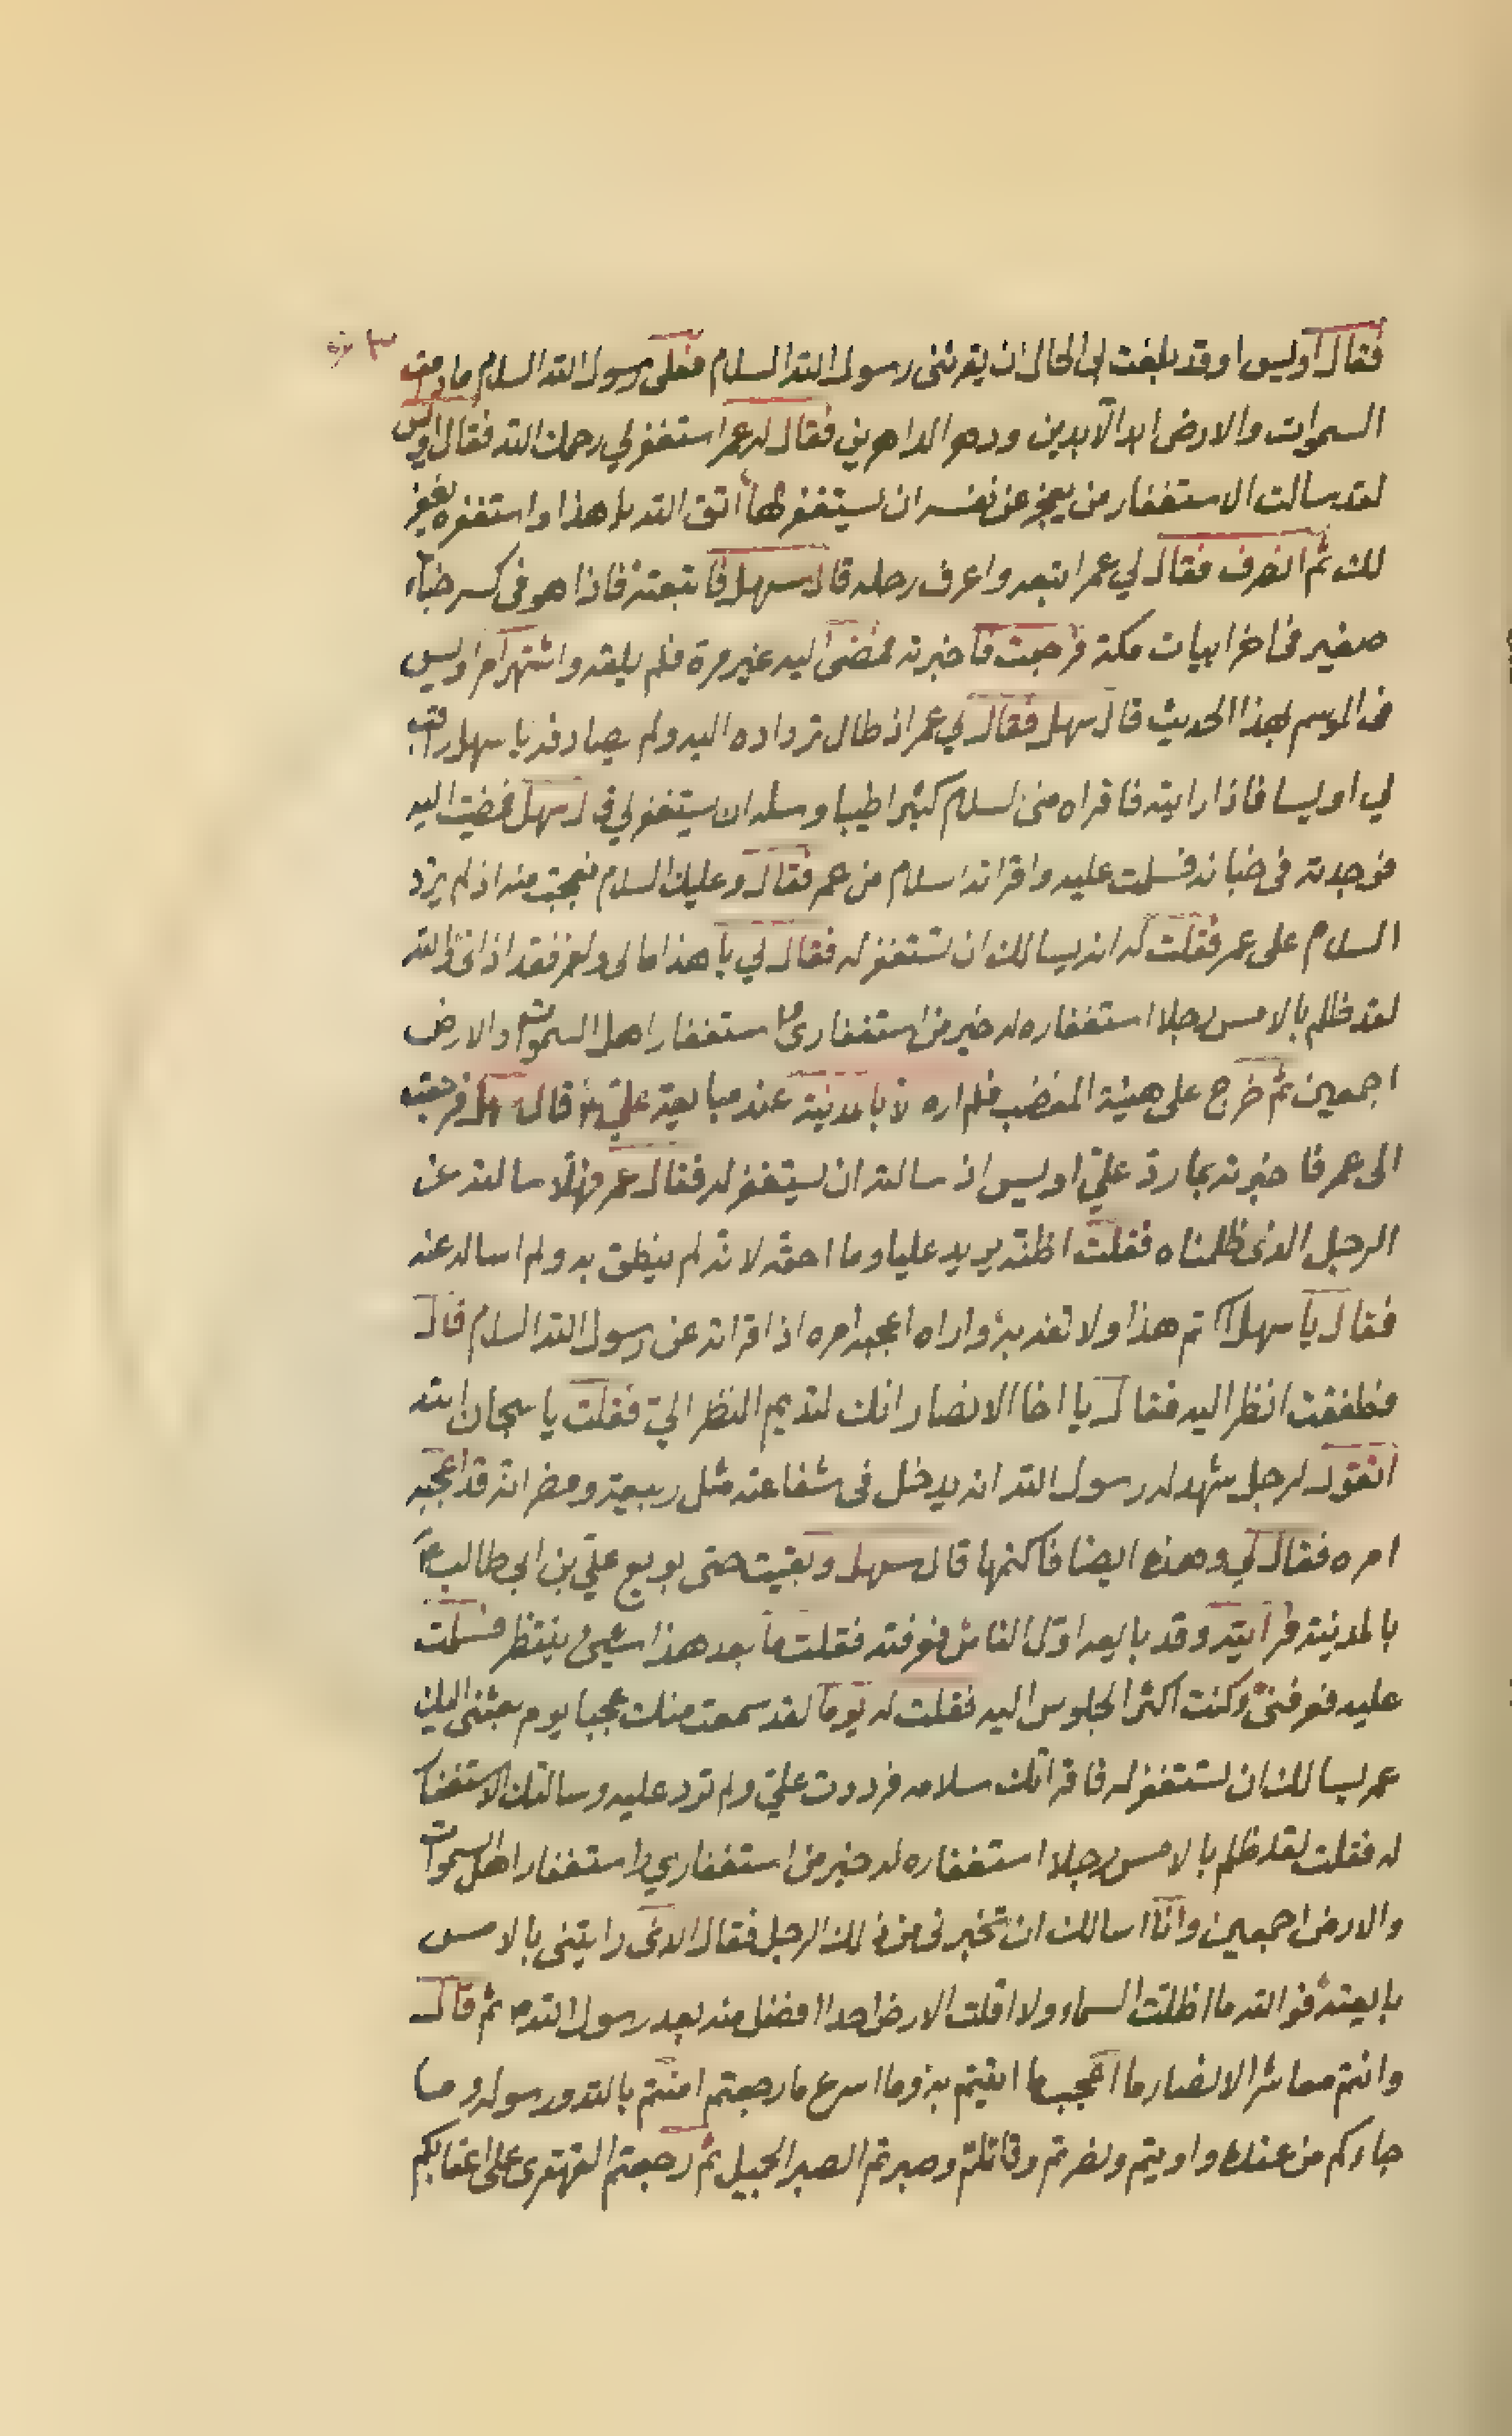 فقال اويس او قد بلغت لي الحال ان يقرئني رسول الله السلام فعلى رسول الله السلام ما دامت
السموات والارض ابد الآبدين ودهر الداهرين فقال له عمر استغفر لي رحمك الله فقال اويس
لقد سالت الاستغفار من يعجز عن نفسه ان يستغفر لها اتق الله يا هذا واستغفره يغفر
لك ثم انصرف فقال لي عمر اتبعه واعرف رحله قال سهل فاتبعته فاذا هو في كسر خباء
صغير في اخر ابيات مكة فرجعت فاخبرته فمضى اليه غير مرة فلم يلقه واشتهر امر اويس
في الموسم بهذا الحديث قال سهل فقال لي عمر اذ طال ترداده اليه ولم يصادفه يا سهل راقب
لي اويسا فاذا رايته فاقراه مني السلام كثيرا طيبا وسله ان يستغفر لي قال سهل فمضيت اليه
فوجدته في خبائه فسلمت عليه واقراته السلام من عمر فقال وعليك السلام فعجبت منه اذ لم يرد
السلام على عمر فقلت له انه يسالك ان تستغفر له فقال لي يا هذا ما لي ولعمر فقد اذاني والله
لقد ظلم بالامس رجلا استغفاره له خير من استغفاري و استغفار اهل السموات والارض
اجمعين ثم خرج على هيئة المغضب فلم اره الا بالمدينة عند مبايعة علي قال سهل فرجعت
الى عمر فاخبرته بما رد علي اويس اذ سالته ان يستغفر له فقال عمر فهلا سالته عن
الرجل الذي ظلمناه فقلت اظنه يريد عليا وما احقه لانه لم ينطق به ولم اساله عنه
فقال يا سهل اكتم هذا ولا تفد به واراه اعجبه امره اذ اقراته عن رسول الله السلام قال
فطفقت انظر اليه فقال يا اخا الانصار انك لتديم النظر الي فقلت يا سبحان الله
اتقول لرجل شهد له رسول الله انه يدخل في شفاعته مثل ربيعة ومضر انه قد اعجبه
امره فقال لي وهذه ايضا فاكتمها قال سهل وبقيت حتى بويع علي بن ابي طالب ع
بالمدينة فرايته وقد بايعه اول الناس فعرفته فقلت ما بعد هذا شيء ينتظر فسلمت
عليه فعرفني وكنت اكثر الجلوس اليه فقلت له يوما لقد سمعت منك عجبا يوم بعثني اليك
عمر يسالك ان تستغفر له فاقراتك سلامه فرددت علي ولم ترد عليه وسالتك الاستغفار
له فقلت لقد ظلم بالامس رجلا استغفاره له خير من استغفاري واستغفار اهل السموات
والارض اجمعين وانا اسالك ان تخبرني من ذلك الرجل فقال الذي رايتني بالامس
بايعته فوالله ما اظلت السماء ولا اقلت الارض احدا افضل منه بعد رسول الله ص ثم قال
وانتم معاشر الانصار ما اعجب ما اتيتم به وما اسرع ما رجعتم امنتم بالله ورسوله وما
جاءكم من عنده واويتم ونصرتم وقاتلتم وصبرتم الصبر الجميل ثم رجعتم القهقرى على اعقابكم